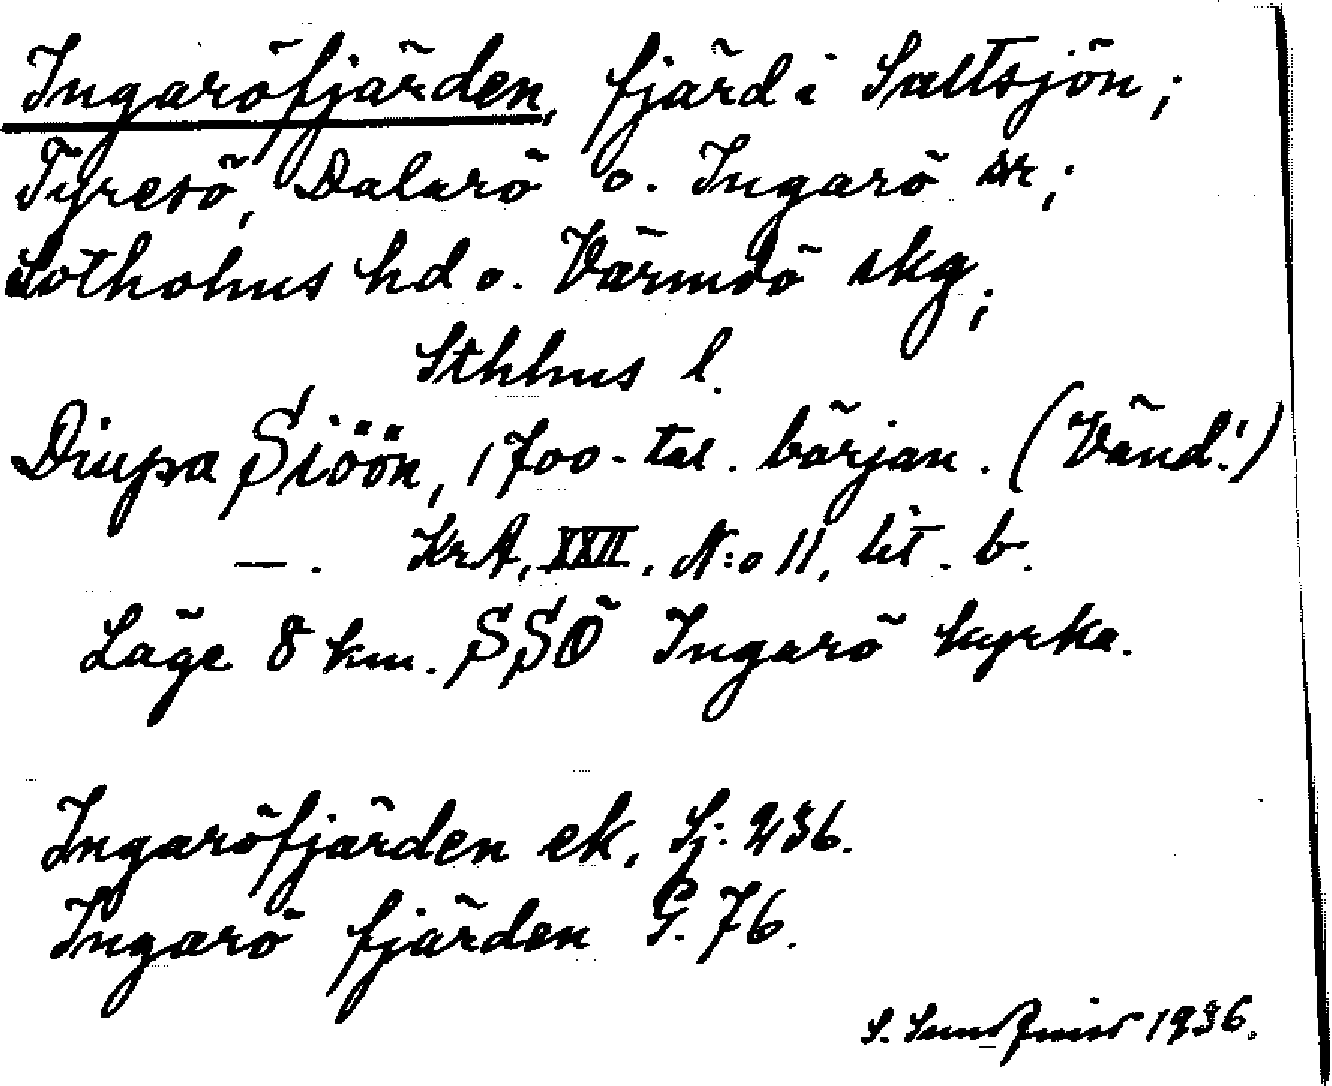 Ingaröfjärden, fjärd i Saltsjön;
Tyresö, Dalarö o. Ingarö snr;
Sotholms hd o. Värmdö skg;
Sthlms l.
Diupa Siöön, 1700-tal. början. (Vänd!)
—. KrA, XXII. N:o 11, lit. b.
Läge 8 km. SSÖ Ingarö kyrka.
Ingaröfjärden ek. Sj. 236.
Ingarö fjärden G. 76.
S. 1936.